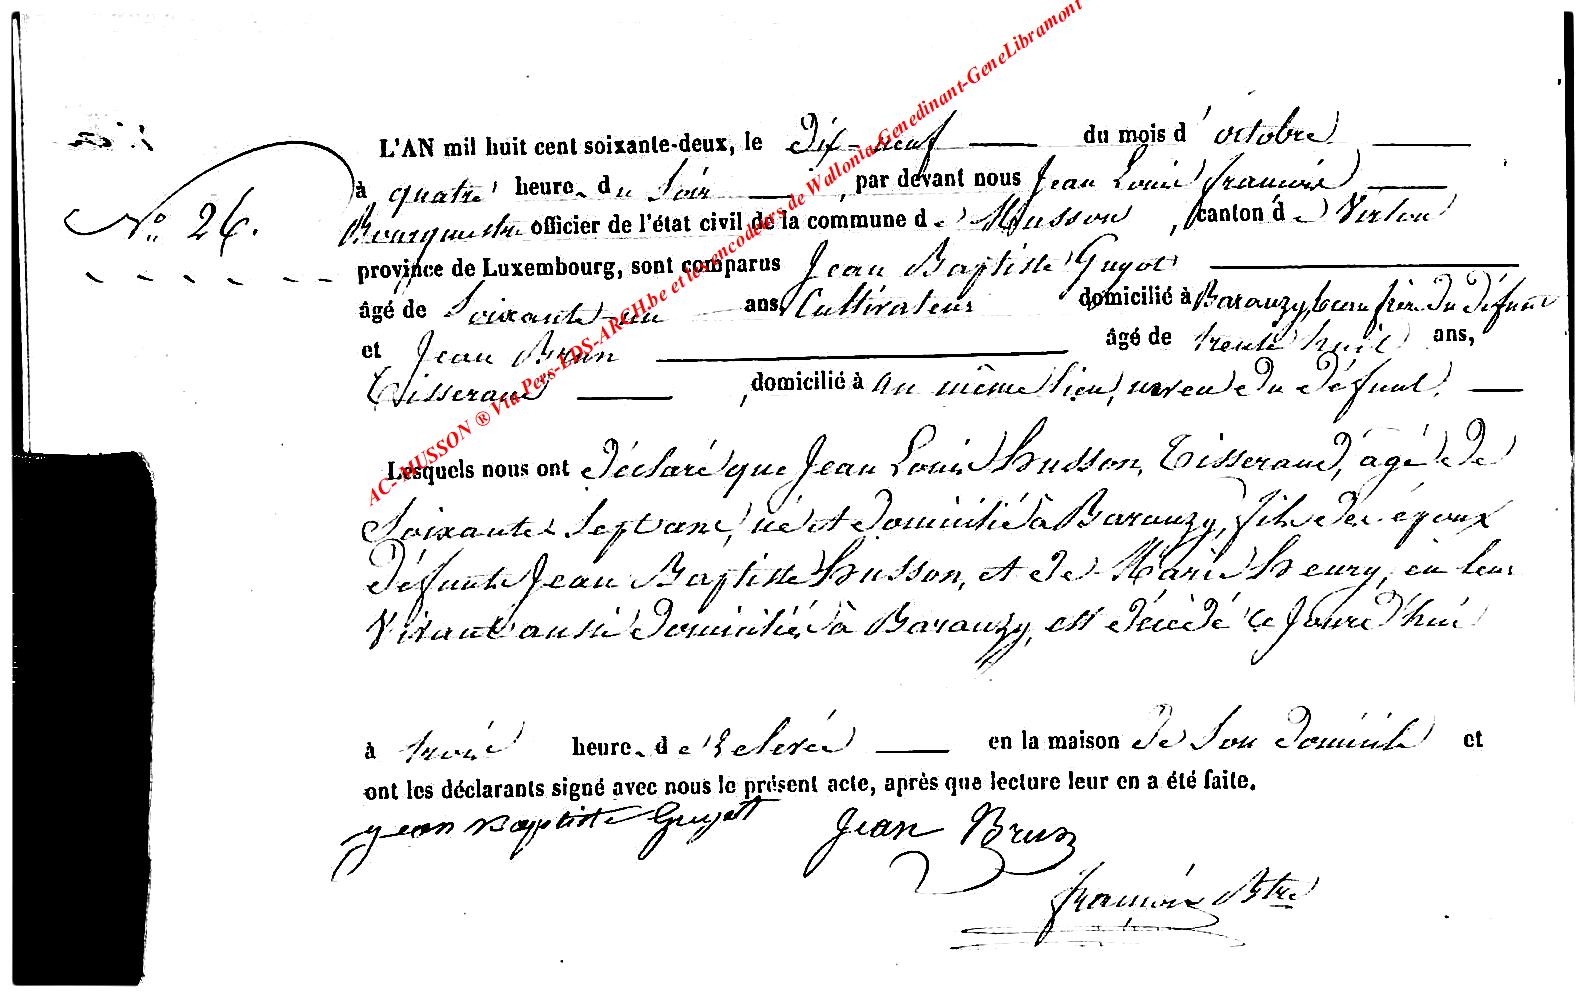 AC-MUSSON ® Via Pers-EDS-ARCH.be et les encodeurs de Wallonia-Genedinant-GeneLibramont
L'AN mil huit cent soixante-deux, le Dix-neuf du mois d'octobre
à quatre heure du Soir, par devant nous Jean Louis françois
N° 26. Bourguestre officier de l'état civil de la commune de Musson, canton de Virton
province de Luxembourg, sont comparus Jean Baptiste Guyot
âgé de Soixante-un ans, Cultivateur domicilié à Baranzy, beau frère du défunt
et Jean Brun âgé de trente huit ans,
Tisserand, domicilié à au même lieu, neveu du défunt.
Lesquels nous ont déclaré que Jean Louis Husson, Tisserand, âgé de
Soixante Sept ans, né et domicilié à Baranzy, fils des époux
défunts Jean Baptiste Husson, et de Marie Henry, en leur
Vivant aussi domiciliés à Baranzy, est décédé ce Jourd'hui
à trois heure de relevée en la maison de Son domicile et
ont les déclarants signé avec nous le présent acte, après que lecture leur en a été faite.
jean Baptiste Guyot Jean Brun
françois Btre